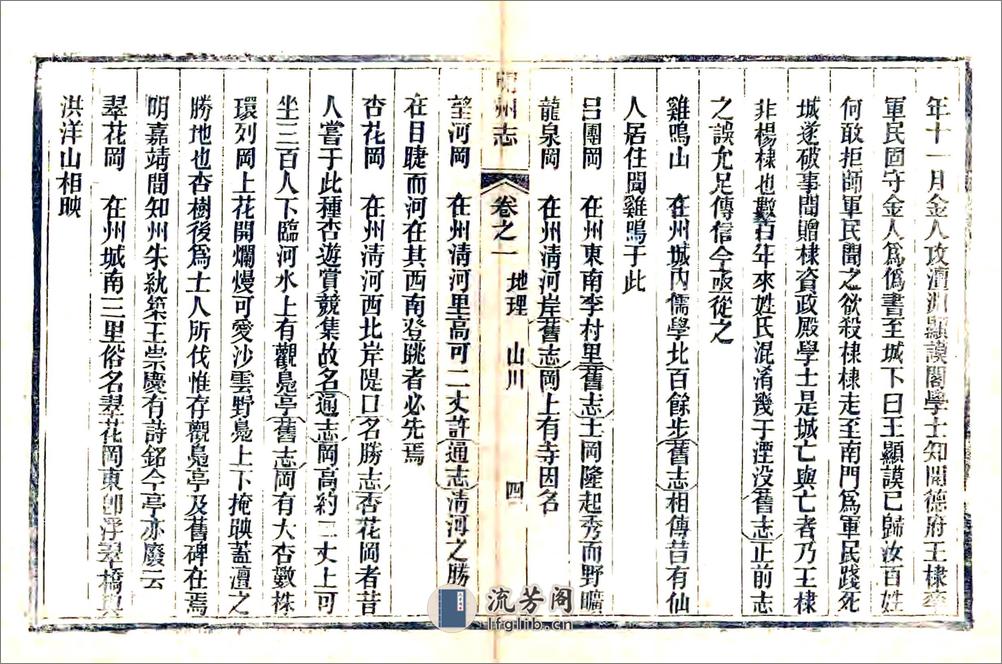 年十一月金人攻澶淵顯謨閣學士知開德府王棣率
軍民固守金人爲僞書至城下曰王顯謨已歸汝百姓
何敢拒師軍民聞之欲殺棣棣走至南門爲軍民踐死
城遂破事聞贈棣資政殿學士是城亡與亡者乃王棣
非楊棣也數百年來姓氏混淆幾于湮没舊志正前志
之誤允足傳信今亟從之
雞鳴山　在州城内儒學北百餘步舊志相傳昔有仙
人居住聞雞鳴于此
呂團岡　在州東南李村里舊志土岡隆起秀而野曠
龍泉岡　在州清河岸舊志岡上有寺因名
開州志　卷之一　地理　山川　四
望河岡　在州清河里高可二丈許通志清河之勝
在目睫而河在其西南登眺者必先焉
杏花岡　在州清河西北岸隄口名勝志杏花岡者昔
人嘗于此種杏遊賞競集故名通志岡高約二丈上可
坐三百人下臨河水上有觀鳧亭舊志岡有大杏數株
環列岡上花開爛熳可愛沙雲野鳧上下掩映葢澶之
勝地也杏樹後爲士人所伐惟存觀鳧亭及舊碑在焉
明嘉靖間知州朱紈築王崇慶有詩銘今亭亦廢云
翠花岡　在州城南三里俗名翠花岡東卽浮翠橋與
洪洋山相映
流芳阁
lfglib.cn